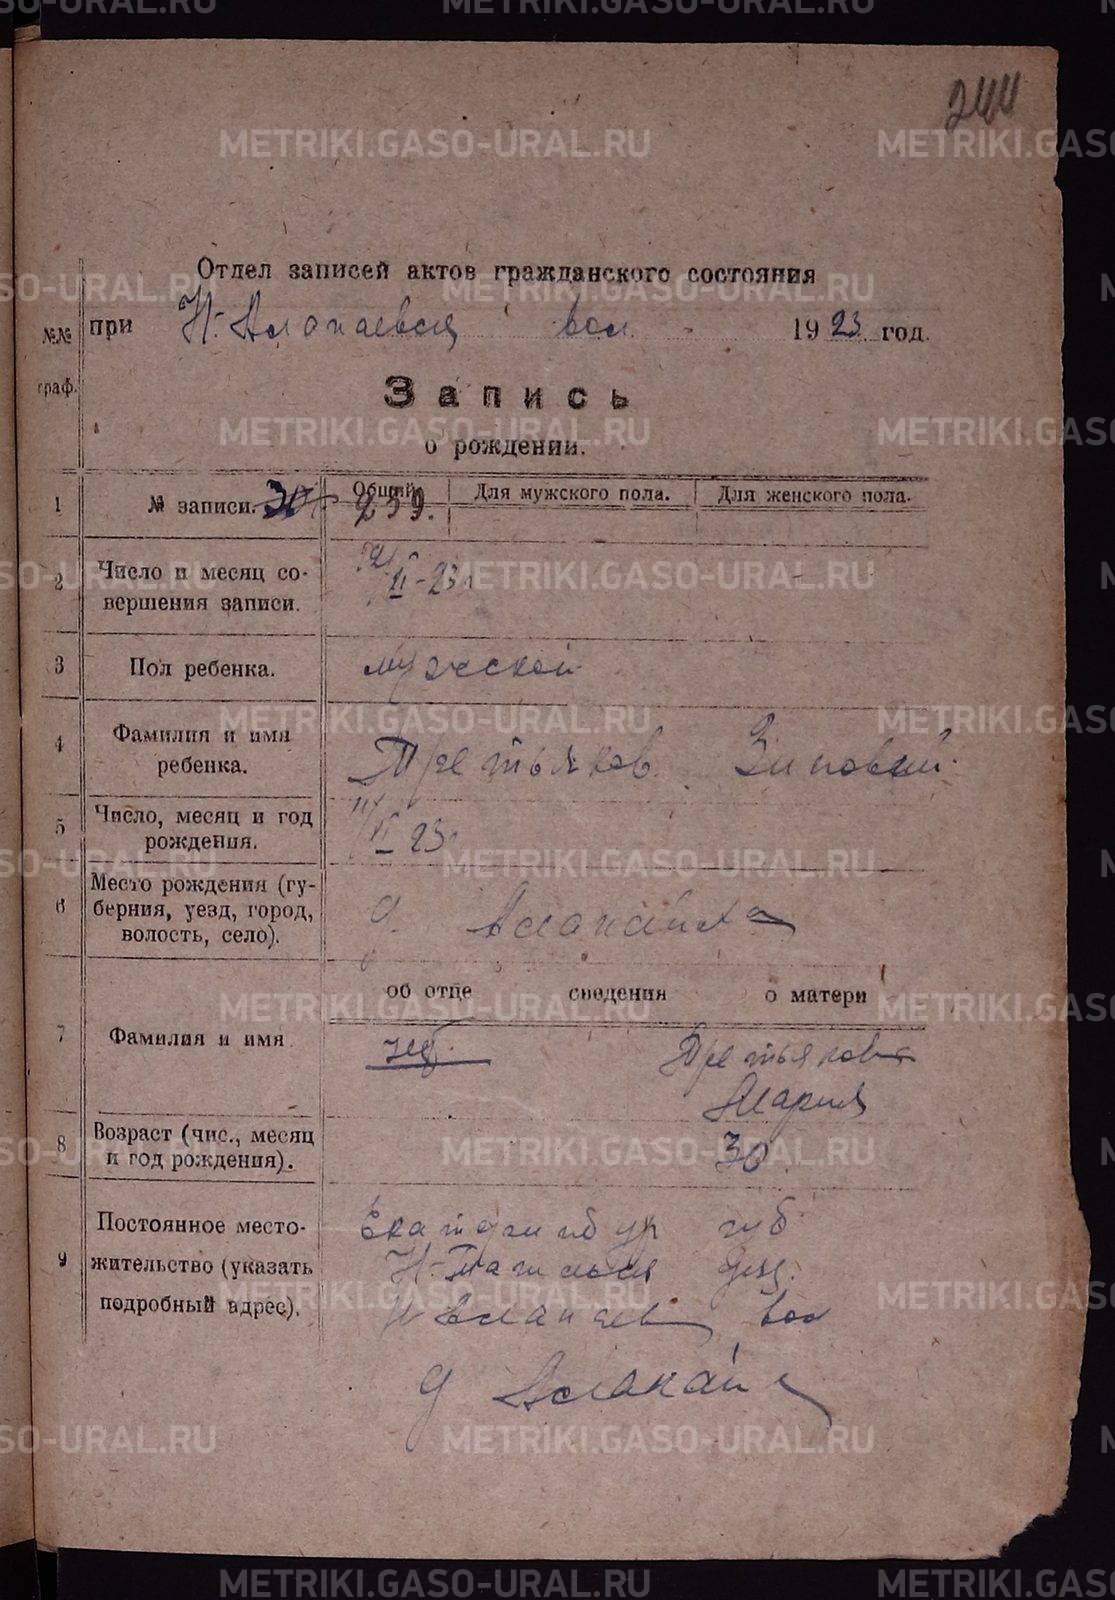 244
Отдел записей актов гражданского состояния
при Н.-Алопаевск вол. 1923 год.
№№ граф.
Запись
о рождении.
1 № записи. Общий Для мужского пола. Для женского пола.
239.
2 Число и месяц со-
вершения записи.
II-23
3 Пол ребенка. мужской
4 Фамилия и имя
ребенка. Третьяков Зиновий
5 Число, месяц и год
рождения. II 23
6 Место рождения (гу-
берния, уезд, город,
волость, село). д.
об отце сведения о матери
7 Фамилия и имя нет. Третьякова
Мария
8 Возраст (чис., месяц
и год рождения). 30.
9 Постоянное место-
жительство (указать
подробный адрес).
Екатеринбур губ
Н-Тагильск уезд.
вол
д
METRIKI.GASO-URAL.RU